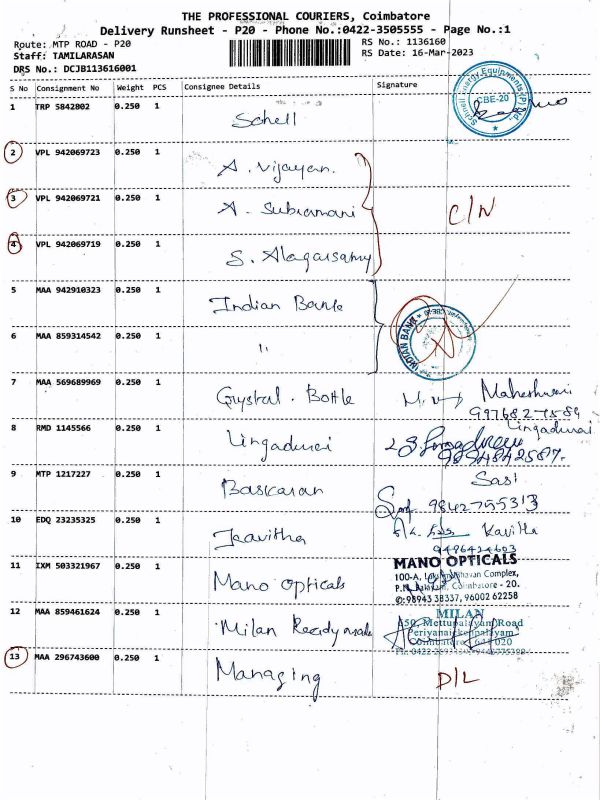 THE PROFESSIONAL COURIERS, Coimbatore
Delivery Runsheet - P20 - Phone No.:0422-3505555 - Page No.:1
Route: MTP ROAD - P20
RS No.: 1136160
Staff: TAMILARASAN
RS Date: 16-Mar-2023
DRS No.: DCJB113616001
S No Consignment No Weight PCS Consignee Details Signature
1 TRP 5842802 0.250 1 Schell
CBE-20
2 VPL 942069723 0.250 1 A. Vijayan.
3 VPL 942069721 0.250 1 A. Subramani C/N
4 VPL 942069719 0.250 1 S. Alagarsamy
5 MAA 942910323 0.250 1 Indian Bank
INDIAN BANK
6 MAA 859314542 0.250 1 "
7 MAA 569689969 0.250 1 Crystal. Bottle Maheshwari
8 RMD 1145566 0.250 1 Lingadurai Lingadurai
9894842587.
9 MTP 1217227 0.250 1 Baskaran Sasi
9842755313
10 EDQ 23235325 0.250 1 Kavitha
11 IXM 503321967 0.250 1 Mano opticals
MANO OPTICALS
100-A, Complex,
Coimbatore - 20.
98943 38337, 96002 62258
12 MAA 859461624 0.250 1 Milan Readymade
MILAN
650, Mettupalayam Road
13 MAA 296743600 0.250 1 Managing D/L